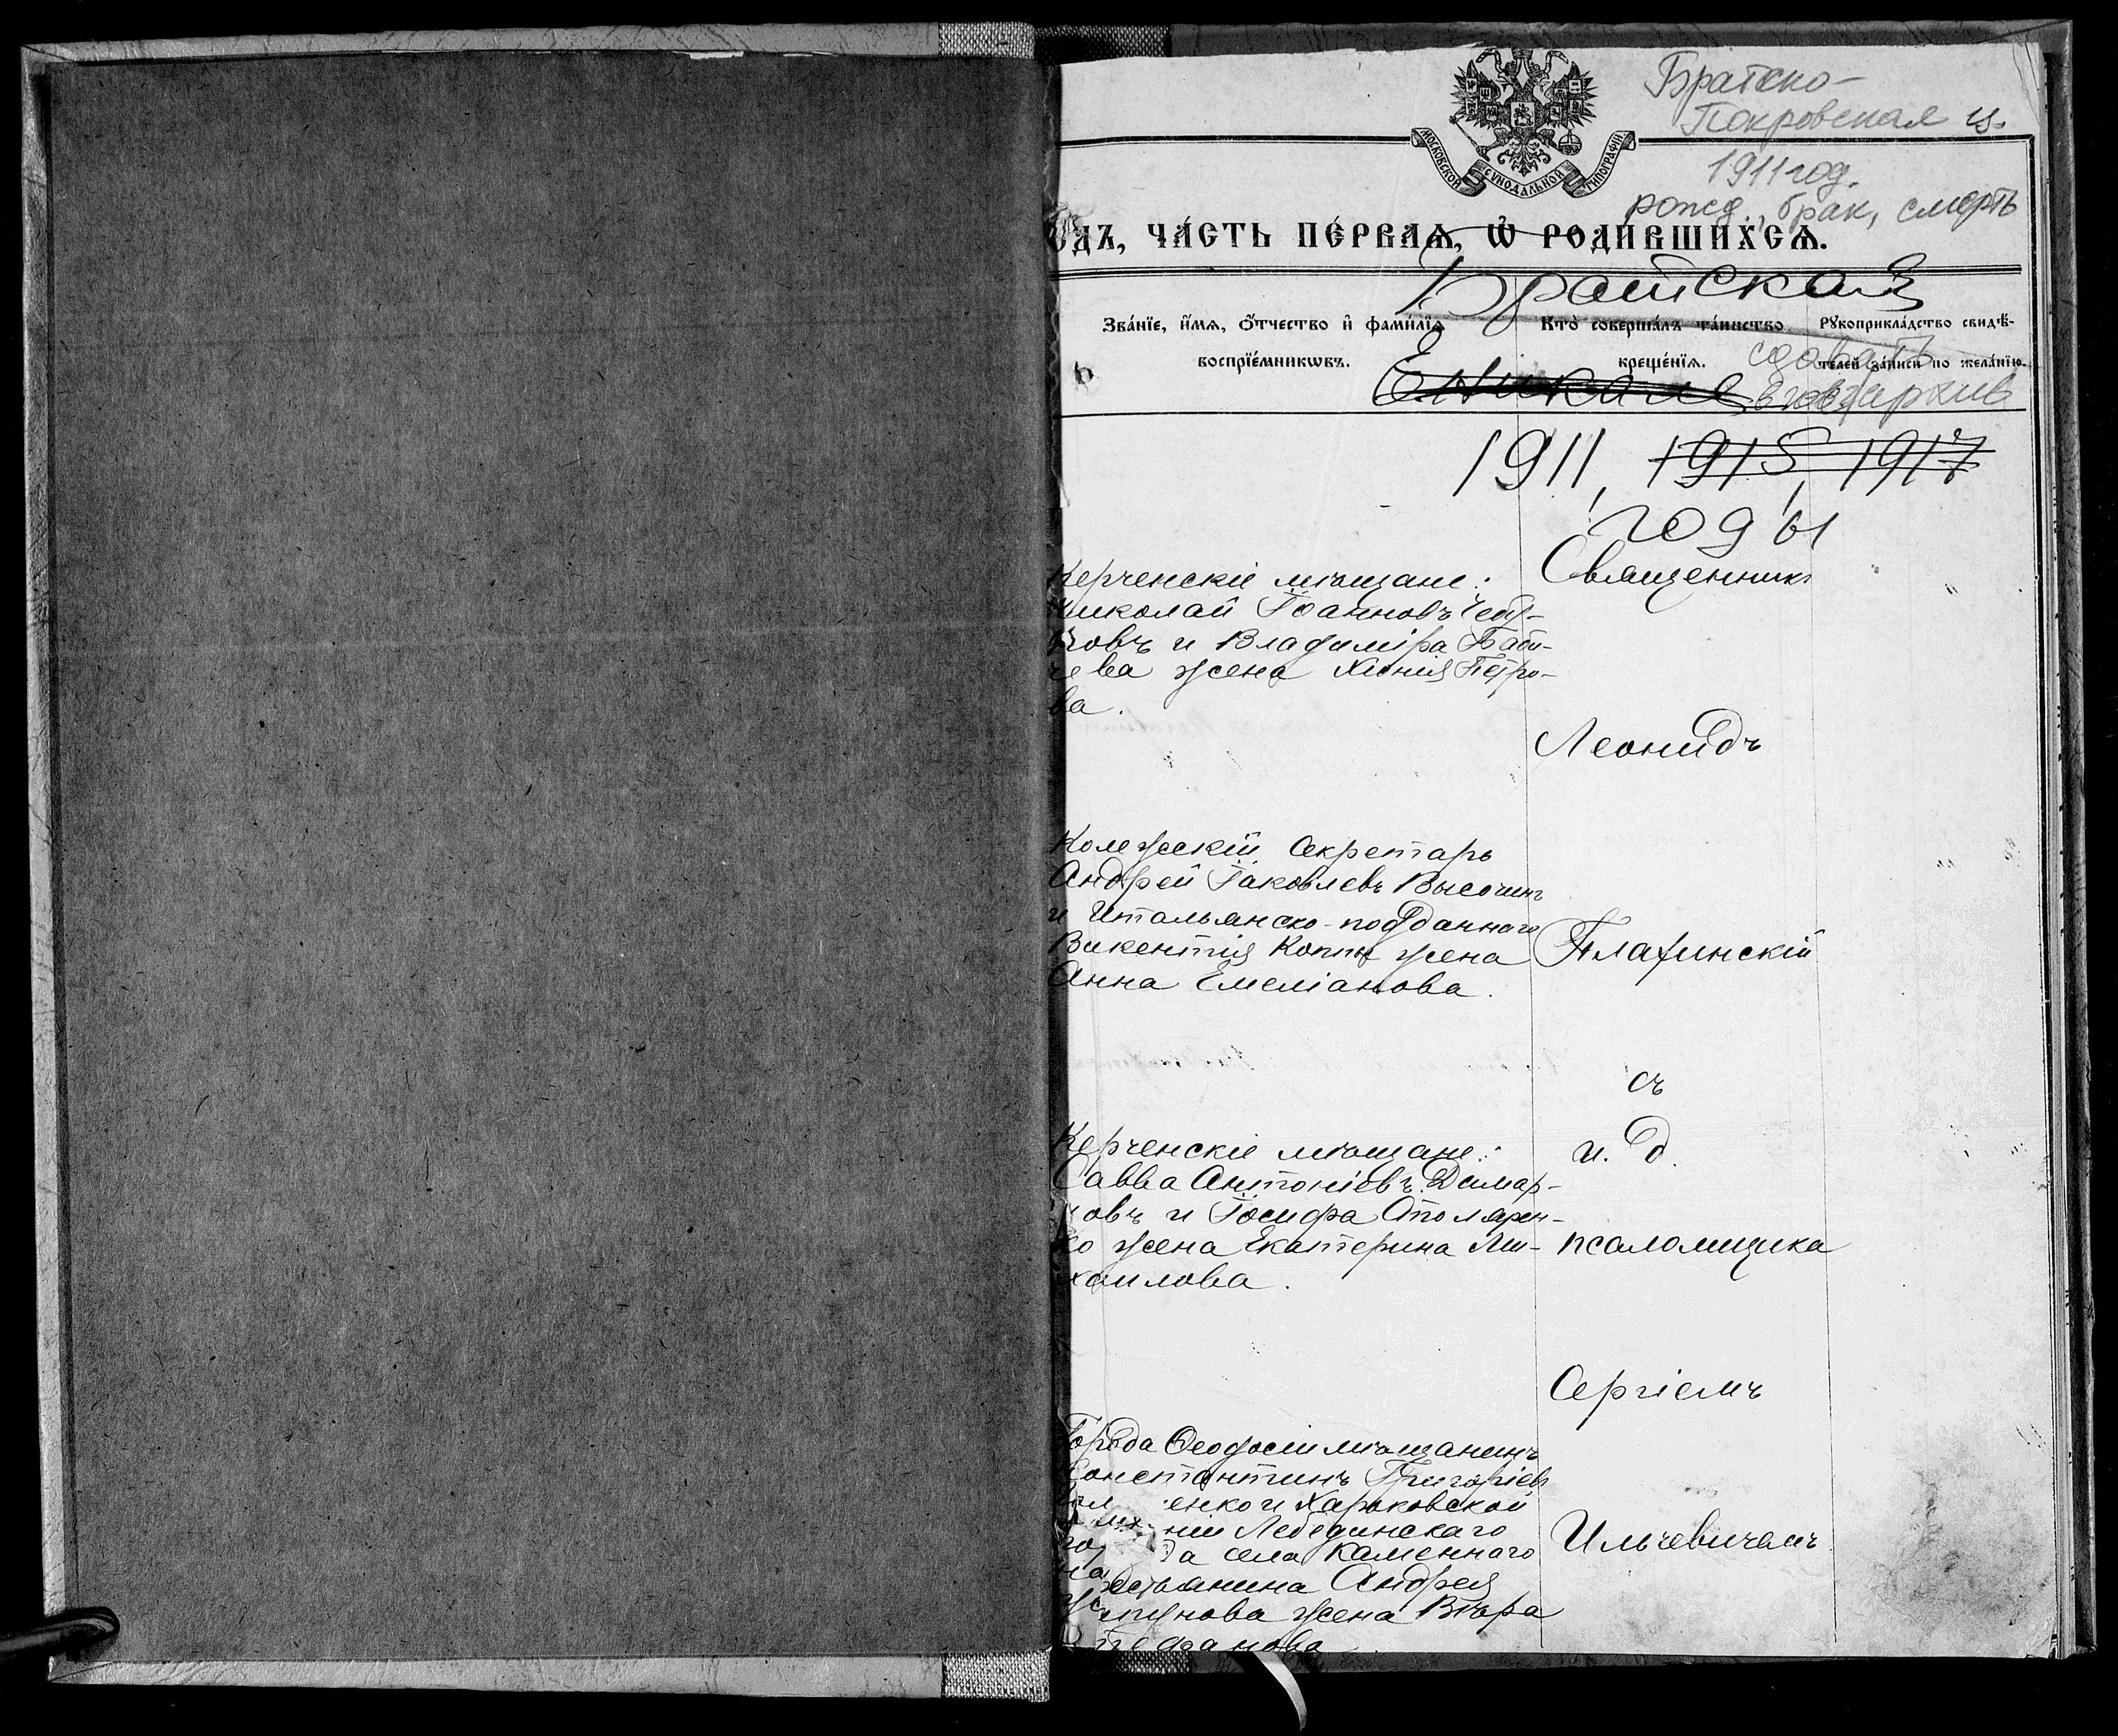 Братско-
Покровская ц.
1911 год.
рожд., брак, смерть
МОСКОВСКОЙ СѴНОДАЛЬНОЙ ТИПОГРАФІИ
ОДЪ, ЧА́СТЬ ПЕ́РВАЯ, Ѡ҆ РОДИ́ВШИХСѦ.
Братская
Зва́нїе, и҆́мѧ, ѻ҆́тчество и҆ фами́лїѧ
воспрїе́мникѡвъ.
Кто̀ соверша́лъ та́инство
креще́нїѧ.
Рꙋкоприкла́дство свидѣ́-
телей за́писи по жела́нїю.
сдавать
в гос архив
Еникале
1911, 1915, 1917
годы
Керченскіе мѣщане:
Николай Іоанновъ Чебу-
ковъ и Владиміра Баби-
чева жена Хіонія Петро-
ва.
Священникъ
Леонидъ
Колежскій Секретарь
Андрей Іаковлевъ Высочинъ
и Итальянско-подданнаго
Викентія Коппы жена
Анна Емеліанова.
Плахинскій
съ
и. д.
Керченскіе мѣщане:
Савва Антоніевъ Димар-
ковъ и Іосифа Столярен-
ко жена Екатерина Ми-
хаилова.
псаломщика
Сергіемъ
Города Ѳеодосіи мѣщанинъ
Константинъ Григоріевъ
енко и Харьковской
ніи Лебединскаго
да села Каменнаго
естьянина Андрея
жена Вѣра
Стефанова
Ильчевичемъ